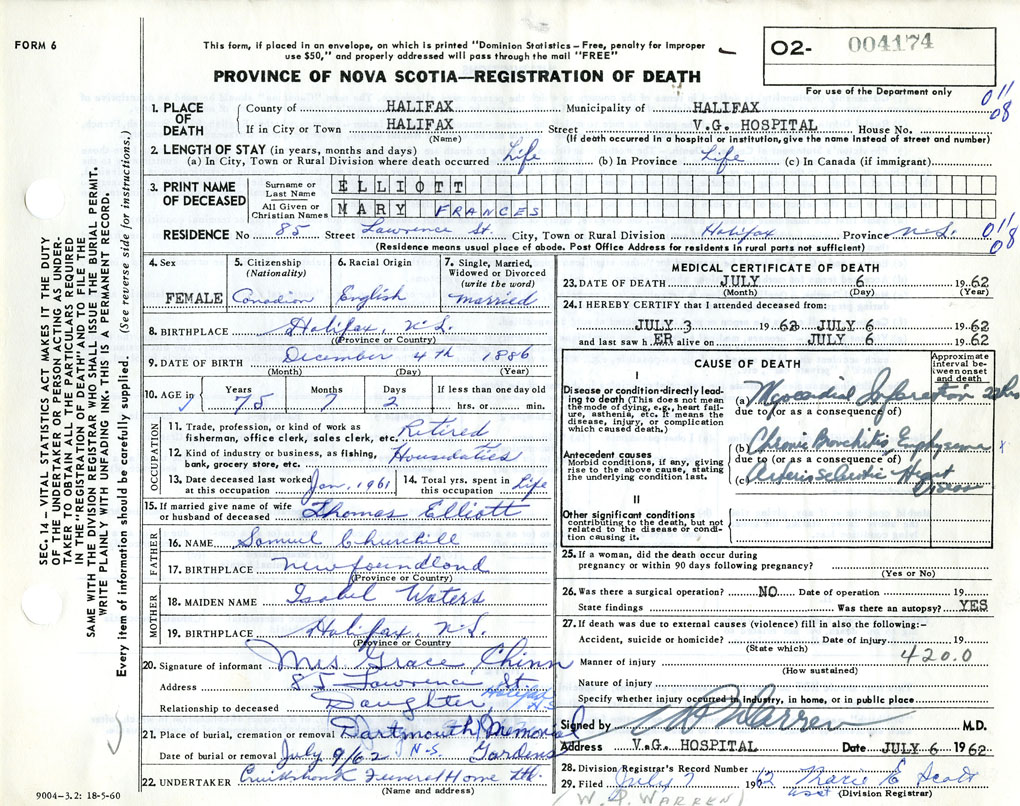 FORM 6
This form, if placed in an envelope, on which is printed "Dominion Statistics – Free, penalty for improper
use $50," and properly addressed will pass through the mail "FREE"
PROVINCE OF NOVA SCOTIA—REGISTRATION OF DEATH
02- 004174
For use of the Department only
011
08
1. PLACE OF DEATH
County of HALIFAX Municipality of HALIFAX
If in City or Town HALIFAX Street V.G. HOSPITAL House No.
(Name) (If death occurred in a hospital or institution, give the name instead of street and number)
2. LENGTH OF STAY (in years, months and days)
(a) In City, Town or Rural Division where death occurred Life (b) In Province Life (c) In Canada (if immigrant)
3. PRINT NAME OF DECEASED
Surname or Last Name ELLIOTT
All Given or Christian Names MARY FRANCES
RESIDENCE No 85 Street Lawrence St. City, Town or Rural Division Halifax Province N.S.
011
08
(Residence means usual place of abode. Post Office Address for residents in rural parts not sufficient)
4. Sex FEMALE
5. Citizenship (Nationality) Canadian
6. Racial Origin English
7. Single, Married, Widowed or Divorced (write the word) Married
8. BIRTHPLACE Halifax, N.S.
(Province or Country)
9. DATE OF BIRTH December 4th 1886
(Month) (Day) (Year)
10. AGE in Years 75 Months 7 Days 2 If less than one day old hrs. or min.
OCCUPATION
11. Trade, profession, or kind of work as fisherman, office clerk, sales clerk, etc. Retired
12. Kind of industry or business, as fishing, bank, grocery store, etc. Houseduties
13. Date deceased last worked at this occupation Jan. 1961
14. Total yrs. spent in this occupation Life
15. If married give name of wife or husband of deceased Thomas Elliott
FATHER
16. NAME Samuel Churchill
17. BIRTHPLACE Newfoundland
(Province or Country)
MOTHER
18. MAIDEN NAME Isabel Waters
19. BIRTHPLACE Halifax, N.S.
(Province or Country)
20. Signature of informant Mrs Grace Chinn
Address 85 Lawrence St. Halifax N.S.
Relationship to deceased Daughter
21. Place of burial, cremation or removal Dartmouth Memorial Gardens N.S.
Date of burial or removal July 9/62
22. UNDERTAKER Cruikshank Funeral Home Ltd.
(Name and address)
9004-3.2: 18-5-60
MEDICAL CERTIFICATE OF DEATH
23. DATE OF DEATH JULY 6 1962
(Month) (Day) (Year)
24. I HEREBY CERTIFY that I attended deceased from:
JULY 3 1962 JULY 6 1962
and last saw h ER alive on JULY 6 1962
CAUSE OF DEATH
Approximate interval between onset and death
I
Disease or condition directly leading to death (This does not mean the mode of dying, e.g., heart failure, asthenia, etc. It means the disease, injury, or complication which caused death.)
(a) Myocardial Infarction
due to (or as a consequence of)
Antecedent causes
Morbid conditions, if any, giving rise to the above cause, stating the underlying condition last.
(b) Chronic Bronchitis, Emphysema
due to (or as a consequence of)
(c) Arteriosclerotic Heart Disease
II
Other significant conditions
contributing to the death, but not related to the disease or condition causing it.
25. If a woman, did the death occur during
pregnancy or within 90 days following pregnancy?
(Yes or No)
26. Was there a surgical operation? NO Date of operation 19
State findings Was there an autopsy? YES
27. If death was due to external causes (violence) fill in also the following:-
Accident, suicide or homicide? Date of injury 19
(State which)
420.0
Manner of injury
(How sustained)
Nature of injury
Specify whether injury occurred in industry, in home, or in public place
Signed by W D Warren M.D.
Address V.G. HOSPITAL Date JULY 6 1962
28. Division Registrar's Record Number
29. Filed July 7 1962 Marie E Scott
asst (Division Registrar)
(W. D. WARREN)
SEC. 14 – VITAL STATISTICS ACT MAKES IT THE DUTY
OF THE UNDERTAKER OR PERSON ACTING AS UNDER-
TAKER TO OBTAIN ALL THE PARTICULARS REQUIRED
IN THE "REGISTRATION OF DEATH" AND TO FILE THE
SAME WITH THE DIVISION REGISTRAR WHO SHALL ISSUE THE BURIAL PERMIT.
WRITE PLAINLY WITH UNFADING INK. THIS IS A PERMANENT RECORD.
Every item of information should be carefully supplied. (See reverse side for instructions.)